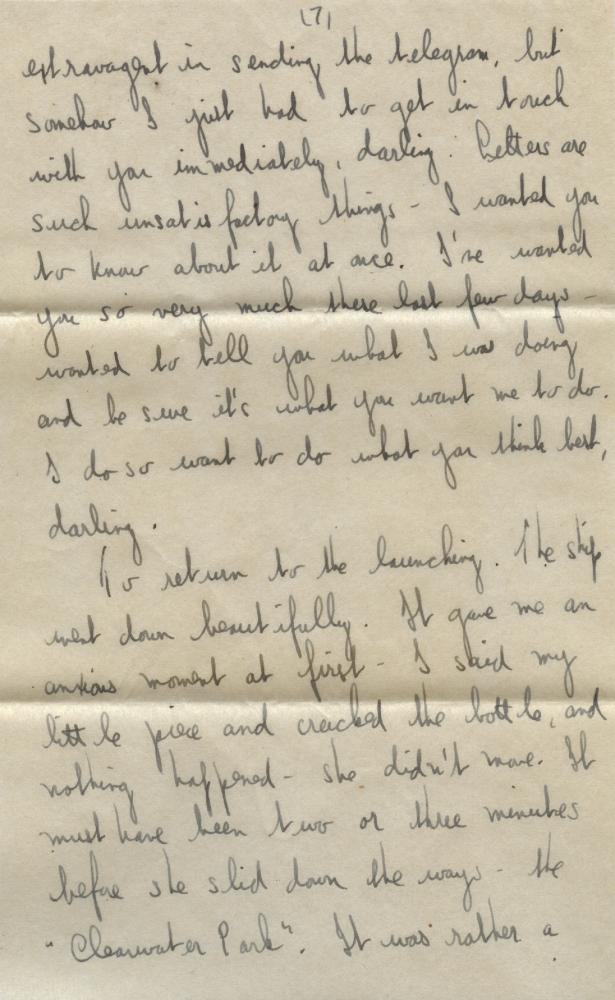 (7)
extravagent in sending the telegram, but
somehow I just had to get in touch
with you immediately, darling. Letters are
such unsatisfactory things - I wanted you
to know about it at once. I've wanted
you so very much these last few days -
wanted to tell you what I was doing
and be sure it's what you want me to do.
I do so want to do what you think best,
darling.
To return to the launching. The ship
went down beautifully. It gave me an
anxious moment at first - I said my
little piece and cracked the bottle, and
nothing happened - she didn't move. It
must have been two or three minutes
before she slid down the ways - the
"Clearwater Park". It was rather a